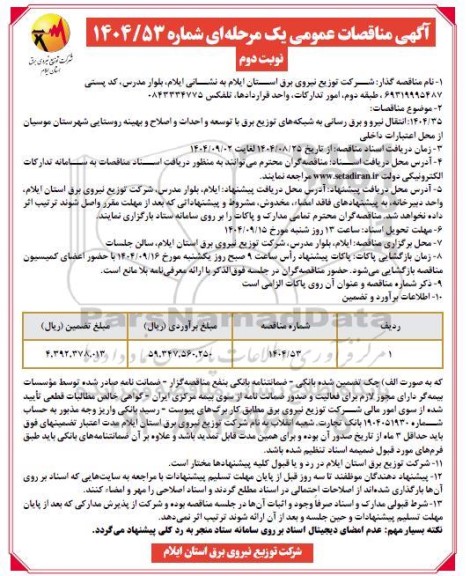 آگهی مناقصات عمومی یک مرحله‌ای شماره ۱۴۰۴/۵۳
نوبت دوم
شرکت توزیع نیروی برق
استان ایلام
۱- نام مناقصه گذار: شـــرکت توزیع نیروی برق اســـتان ایلام به نشـــانی ایلام، بلوار مدرس، کد پستی
۶۹۳۱۹۹۹۵۴۸۷ ، طبقه دوم، امور تدارکات، واحد قراردادها، تلفکس ۰۸۴۳۳۳۴۷۷۵
۲- موضوع مناقصات:
۱۴۰۴/۳۵:انتقال نیرو و برق رسانی به شبکه‌های توزیع برق با توسعه و احداث و اصلاح و بهینه روستایی شهرستان موسیان
از محل اعتبارات داخلی
۳- زمان دریافت اسناد مناقصه: از تاریخ ۱۴۰۴/۰۸/۲۵ لغایت ۱۴۰۴/۰۹/۰۲
۴- آدرس محل دریافت اســـناد: مناقصه‌گران محترم می توانند به منظور دریافت اســـناد مناقصات به ســـامانه تدارکات
الکترونیکی دولت www.setadiran.ir مراجعه نمایند.
۵- آدرس محل دریافت پیشنهاد: آدرس محل دریافت پیشنهاد: ایلام، بلوار مدرس، شرکت توزیع نیروی برق استان ایلام،
واحد دبیرخانه ، به پیشنهادهای فاقد امضاء، مخدوش، مشروط و پیشنهاداتی که بعد از مهلت مقرر واصل شوند ترتیب اثر
داده نخواهد شد. مناقصه‌گران محترم تمامی مدارک و پاکات را بر روی سامانه ستاد بارگزاری نمایند.
۶- مهلت تحویل اسناد: ساعت ۱۳ روز شنبه مورخ ۱۴۰۴/۰۹/۱۵
۷- محل برگزاری مناقصه: ایلام، بلوار مدرس، شرکت توزیع نیروی برق استان ایلام، سالن جلسات
۸- زمان بازگشایی پاکات: پاکات پیشنهاد رأس ساعت ۹ صبح روز یکشنبه مورخ ۱۴۰۴/۰۹/۱۶ با حضور اعضای کمیسیون
مناقصه بازگشایی می‌شود. حضور مناقصه‌گران در جلسه فوق‌الذکر با ارائه معرفی‌نامه بلا مانع است.
۹- ذکر شماره مناقصه و عنوان آن روی پاکات الزامی است
۱۰- اطلاعات برآورد و تضمین
ردیف شماره مناقصه مبلغ برآوردی (ریال) مبلغ تضمین (ریال)
۱ ۱۴۰۴/۵۳ ۵۹.۳۴۷.۵۶۰.۲۵۰ ۴.۳۹۲.۳۷۸.۰۱۳
که به صورت الف) چک تضمین شده بانکی - ضمانتنامه بانکی بنفع مناقصه‌گزار - ضمانت نامه صادر شده توسط مؤسسات
بیمه‌گر دارای مجوز لازم برای فعالیت و صدور ضمانت نامه از سوی بیمه مرکزی ایران - گواهی خالص مطالبات قطعی تأیید
شده از سوی امور مالی شـــرکت توزیع نیروی برق مطابق کاربرگ‌های پیوست - رسید بانکی واریز وجه مذبور به حساب
شماره ۱۹۴۰۵۱۹۳۰ بانک تجارت. شعبه انقلاب به نام شرکت توزیع نیروی برق استان ایلام مدت اعتبار تضمینهای فوق
باید حداقل ۳ ماه از تاریخ صدور آن بوده و برای همین مدت قابل تمدید باشد و علاوه بر آن ضمانتنامه‌های بانکی باید طبق
فرم‌های مورد قبول ضمیمه اسناد تنظیم شده باشد.
۱۱- شرکت توزیع برق استان ایلام در رد و یا قبول کلیه پیشنهادها مختار است.
۱۲- پیشنهاد دهندگان موظفند تا سه روز قبل از پایان مهلت تسلیم پیشنهادات با مراجعه به سایت‌هایی که اسناد بر روی
آن‌ها بارگذاری شده‌اند از اصلاحات احتمالی در اسناد مطلع گردند و اسناد اصلاحی را مهر و امضاء کنند.
۱۳- شرط قبولی مدارک و اسناد صرفاً وجود و اثبات آن‌ها در جلسه مناقصه بوده و شرکت از پذیرش مدارکی که بعد از پایان
مهلت تسلیم پیشنهادات و حین جلسه و بعد از آن ارائه شوند ترتیب اثر نمی‌دهد.
نکته بسیار مهم: عدم امضای دیجیتال اسناد بر روی سامانه ستاد منجر به رد کلی پیشنهاد می‌گردد.
شرکت توزیع نیروی برق استان ایلام